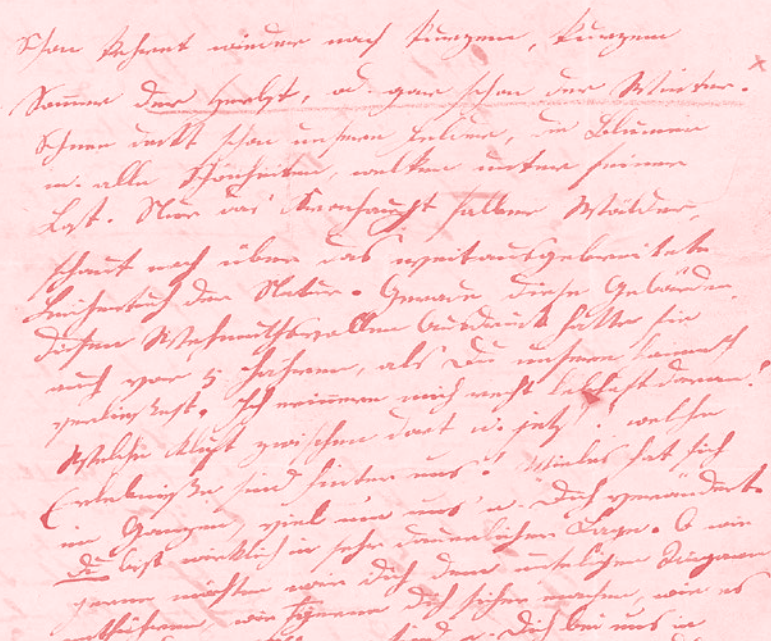 Schon kehret wieder nach kurzem, kurzem
Sommer der Herbst, od. gar schon der Winter.
Schnee deckt schon unsere Felder, die Blumen
u. alle Schönheiten, welken unter seiner
Last. Nur das falber Wälder,
schaut noch über das weitausgebreitete
Leichentuch der Natur. Gerade diese Gebärden
diesen Wehmuthsvollen Ausdruck hatte sie
auch vor 5 Jahren, als Du unsere Heimath
verließest. Ich erinnere mich recht lebhaft daran!
Welche Kluft zwischen dort u. jetzt! welche
Erlebniße sind hinter uns! Vieles hat sich
im Ganzen, viel um uns u. Dich verändert.
Du bist wirklich in sehr Lage. O wie
gerne möchten wir Dich dem
entführen, wie gerne Dich sicher machen, wie es
sind u. Dich bei uns in